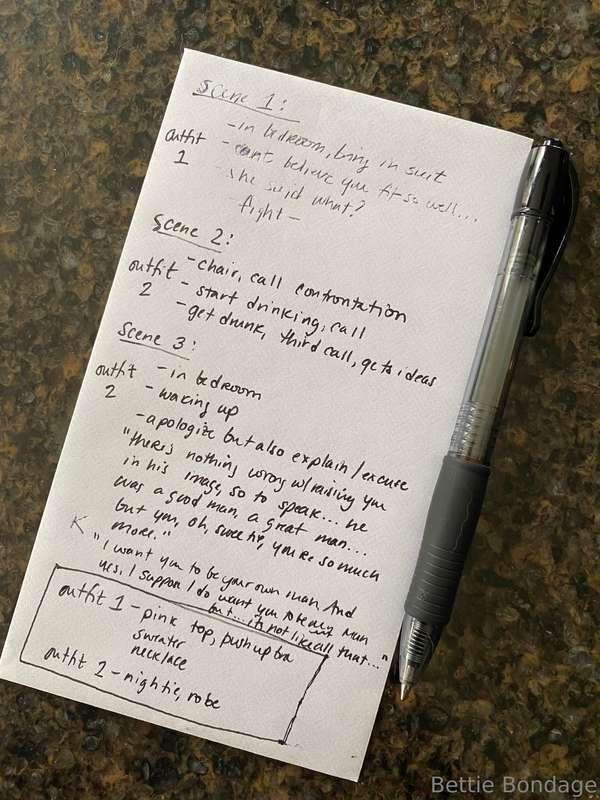 Scene 1:
- in bedroom, bring in suit
outfit 1
- can't believe you fit so well...
- she said what?
- fight -
Scene 2:
outfit 2
- chair, call confrontation
- start drinking, call
- get drunk, third call, gets ideas
Scene 3:
outfit 2
- in bedroom
- waking up
- apologize but also explain/excuse
"there's nothing wrong w/ raising you
in his image, so to speak... he
was a good man, a great man...
but you, oh, sweetie, you're so much
more."
"I want you to be your own man. And
yes, I suppose I do want you to be my man
but... it's not like all that..."
outfit 1 - pink top, pushup bra
sweater
necklace
outfit 2 - nightie, robe
Bettie Bondage